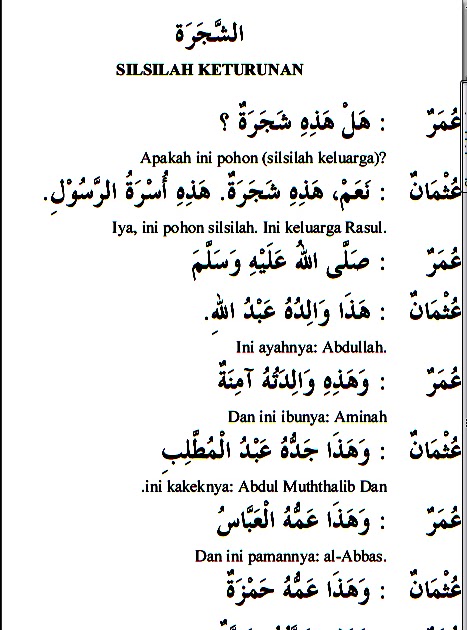 الشَّجَرَة
SILSILAH KETURUNAN
عُمَرٌ : هَلْ هَذِهِ شَجَرَةٌ ؟
Apakah ini pohon (silsilah keluarga)?
عُثْمَانٌ : نَعَمْ، هَذِهِ شَجَرَةٌ. هَذِهِ أُسْرَةُ الرَّسُوْلِ.
Iya, ini pohon silsilah. Ini keluarga Rasul.
عُمَرٌ : صَلَّى اللهُ عَلَيْهِ وَسَلَّمَ
عُثْمَانٌ : هَذَا وَالِدُهُ عَبْدُ اللهِ.
Ini ayahnya: Abdullah.
عُمَرٌ : وَهَذِهِ وَالِدَتُهُ آمِنَةٌ
Dan ini ibunya: Aminah
عُثْمَانٌ : وَهَذَا جَدُّهُ عَبْدُ الْمُطَّلِبِ
.ini kakeknya: Abdul Muththalib Dan
عُمَرٌ : وَهَذَا عَمُّهُ الْعَبَّاسُ
Dan ini pamannya: al-Abbas.
عُثْمَانٌ : وَهَذَا عَمُّهُ حَمْزَةٌ